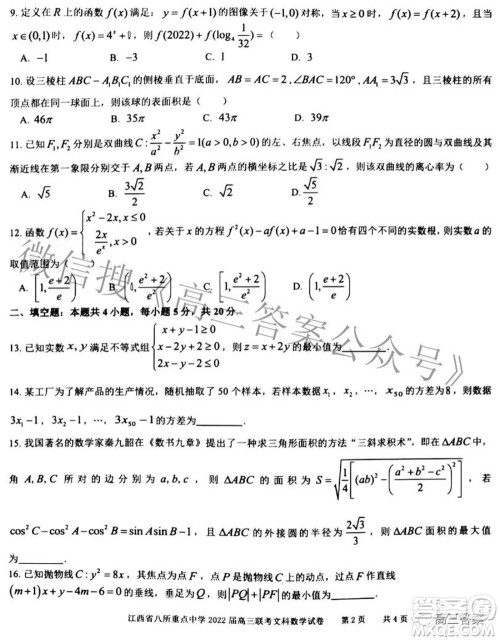 9. 定义在 R 上的函数 f(x) 满足: y = f(x+1) 的图像关于 (-1,0) 对称, 当 x ≥ 0 时, f(x+4) = f(x), 且当
x ∈ (0,1) 时, f(x) = 4^x + , 则 f(2022) + f(log_4 1/32) = ( )
A. -1 B. -3 C. 1 D. 3
10. 设三棱柱 ABC - A_1B_1C_1 的侧棱垂直于底面, AB = AC = 2, ∠BAC = 120°, AA_1 = 3√3, 且三棱柱的所有
顶点都在同一球面上, 则该球的表面积是( )
A. 46π B. 35π C. 43π D. 39π
11. 已知 F_1, F_2 分别是双曲线 C: x²/a² - y²/b² = 1(a > 0, b > 0) 的左、右焦点, 以线段 F_1F_2 为直径的圆与双曲线及其
渐近线在第一象限分别交于 A, B 两点, 若 A, B 两点的横坐标之比是 √3 : √2, 则该双曲线的离心率为( )
A. √5 B. 3√2/2 C. √2 D. √5/2
12. 函数 f(x) = { x² - 2x, x ≤ 0; 2x/e^x, x > 0, 若关于 x 的方程 f²(x) - af(x) + a - 1 = 0 恰有四个不同的实数根, 则实数 a 的
取值范围为( )
A. [1, (e+2)/e) B. (1, (e²+2)/e) C. [1, (e²+2)/e) D. (1, (e+2)/e)
二、填空题: 本题共 4 小题, 每小题 5 分, 共 20 分
13. 已知实数 x, y 满足不等式组 { x + y - 1 ≥ 0; x - 2y + 2 ≥ 0; 2x - y - 2 ≤ 0, 则 z = x + 2y 的最小值为______.
14. 某工厂为了解产品的生产情况, 随机抽取了 50 个样本, 若样本数据 x_1, x_2, …, x_50 的方差为 8, 则数据
3x_1 - 1, 3x_2 - 1, …, 3x_50 - 1 的方差为______.
15. 我国著名的数学家秦九韶在《数书九章》提出了一种求三角形面积的方法“三斜求积术”, 即在△ABC 中,
角 A, B, C 所对的边分别为 a, b, c, 则 △ABC 的面积为 S = √(1/4[(ab)² - ((a² + b² - c²)/2)²], 若
cos²C - cos²A - cos²B = sin A sin B - 1, 且 △ABC 的外接圆的半径为 2√3/3, 则 △ABC 面积的最大值
为______.
16. 已知抛物线 C: y² = 8x, 其焦点为点 F, 点 P 是抛物线 C 上的动点, 过点 F 作直线
(m+1)x + y - m - 4 = 0 的垂线, 垂足为 Q, 则 |PQ| + |PF| 的最小值为______.
江西省八所重点中学 2022 届高三联考文科数学试卷 第 2 页 共 4 页
微信搜《高三答案公众号》
高三答案